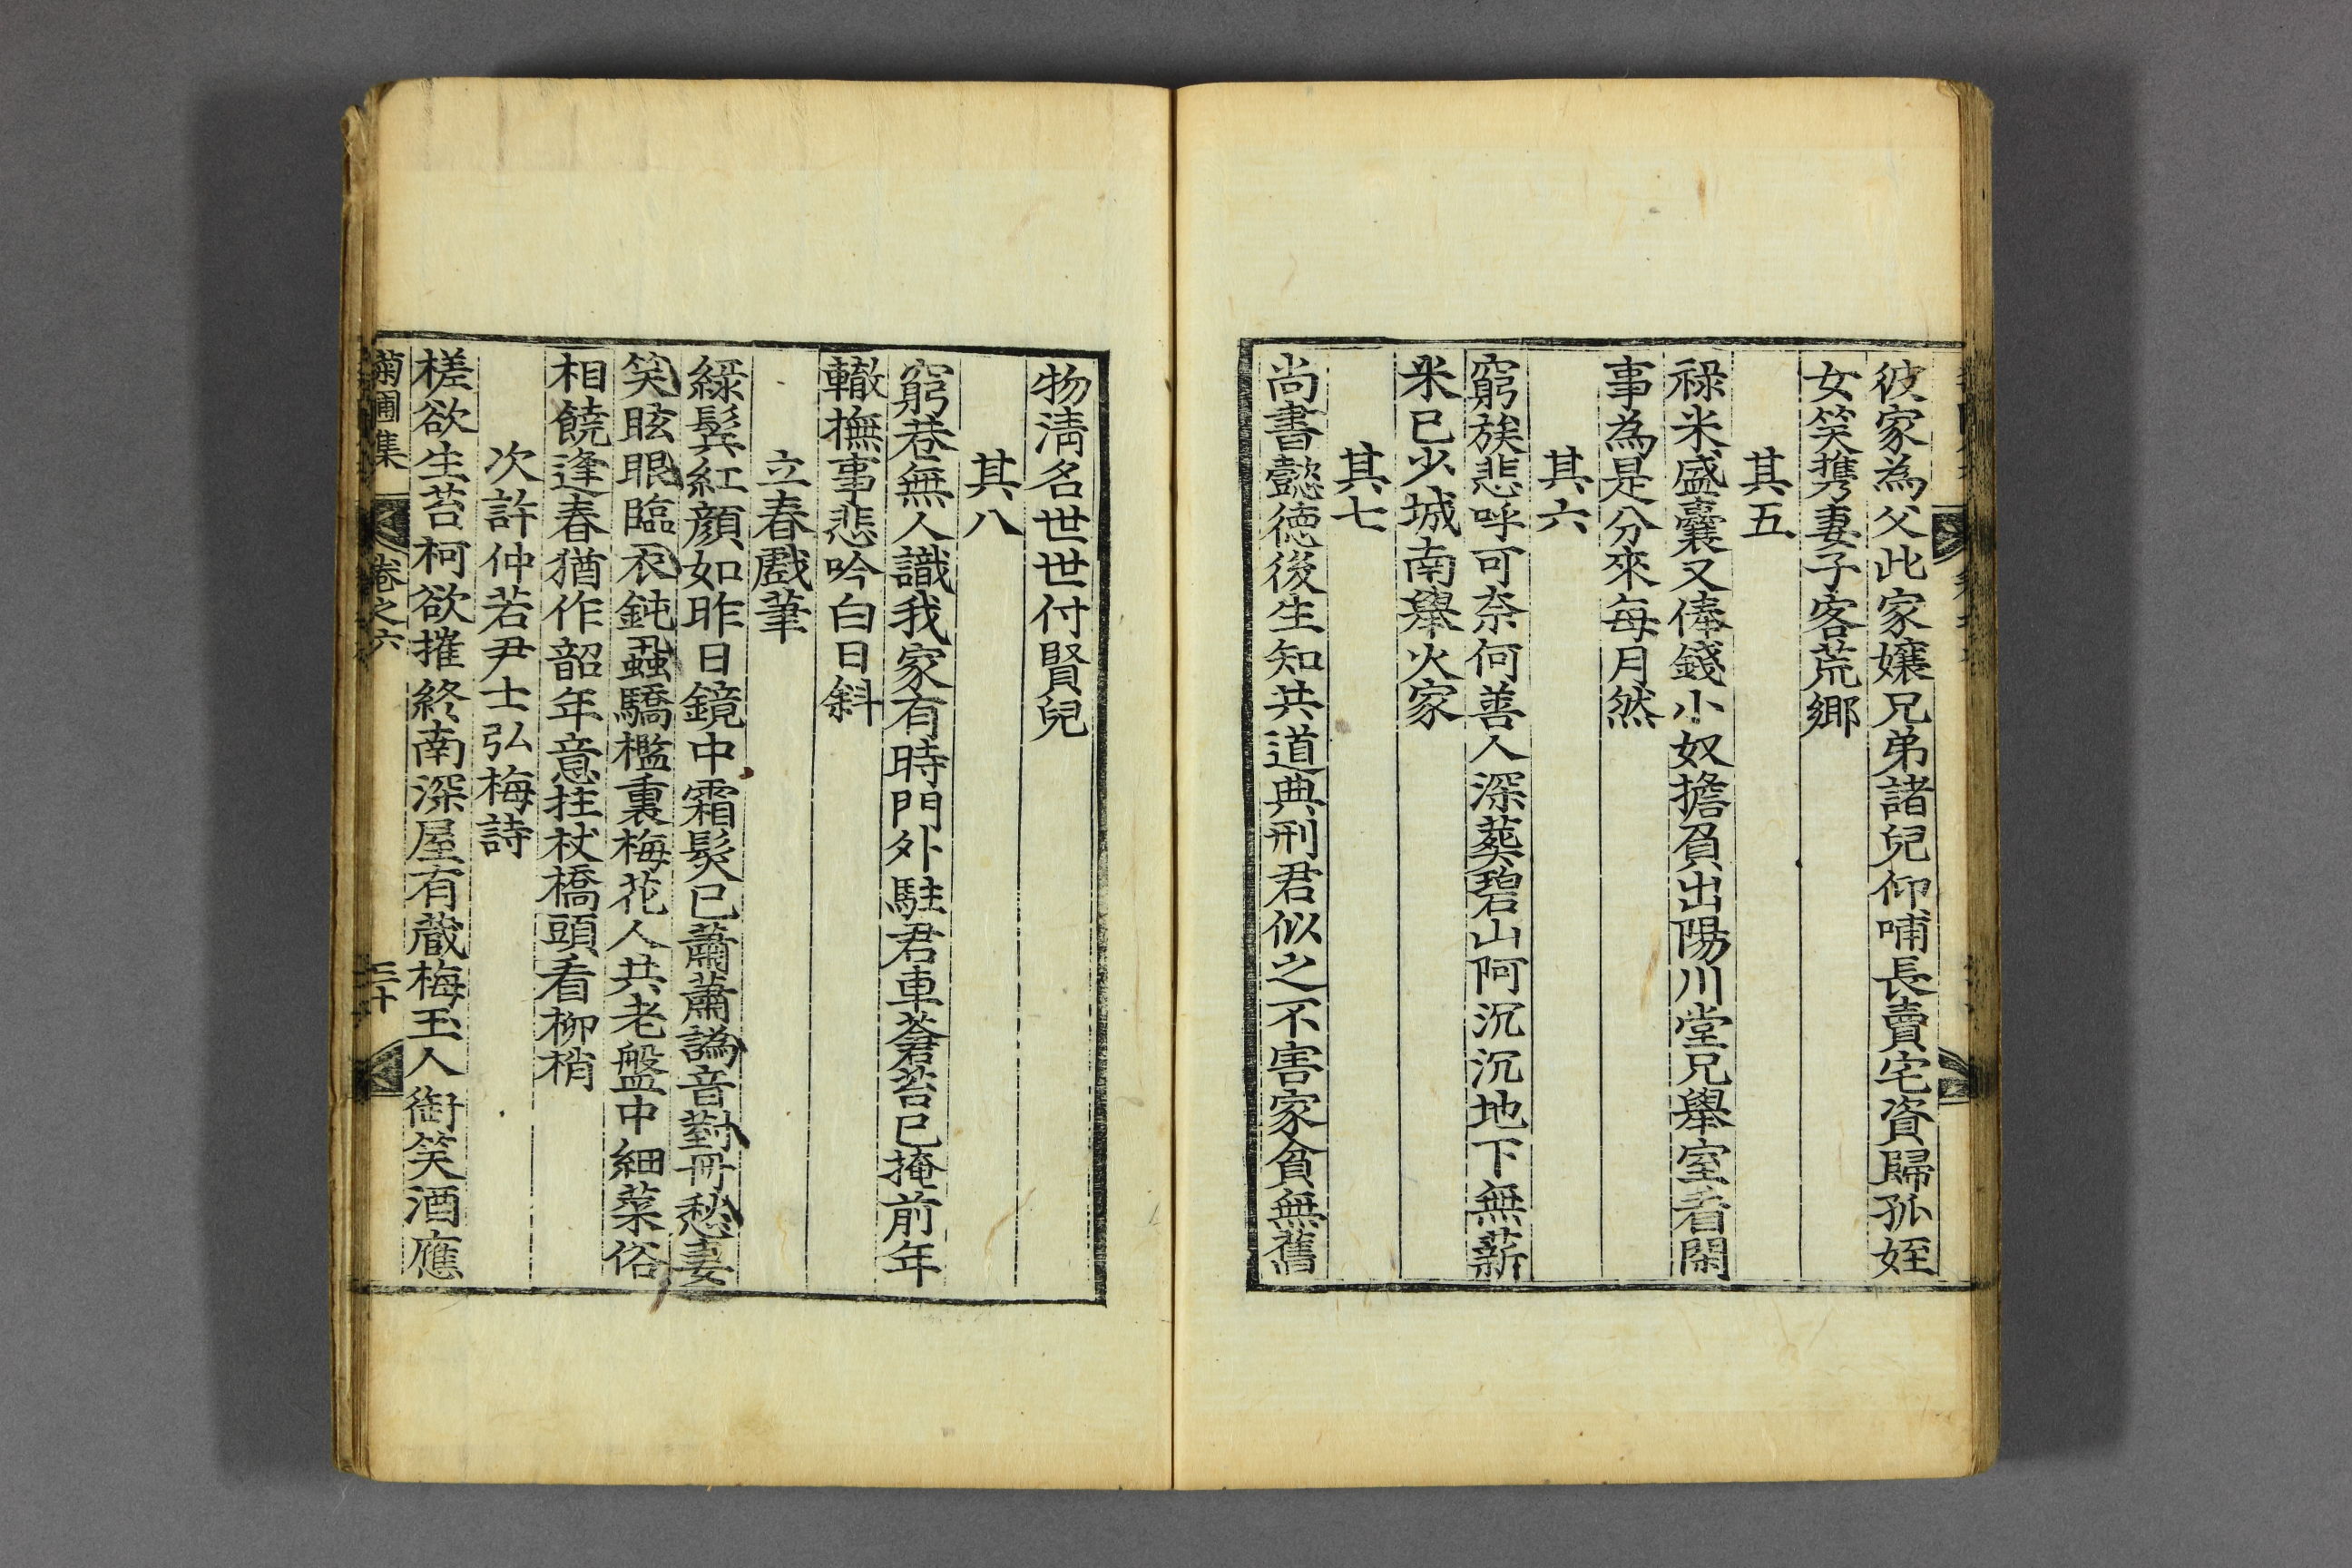 彼家為父此家孃兄弟諸兒仰哺長賣宅資歸孤姪
女笑携妻子客荒鄉
其五
祿米盛囊又俸錢小奴擔負出陽川堂兄舉室看閑
事為是分來每月然
其六
窮族悲呼可奈何善人深葬碧山阿沉沉地下無薪
米已少城南舉火家
其七
尚書懿德後生知共道典刑君似之不害家貧無舊
物淸名世世付賢兒
其八
窮巷無人識我家有時門外駐君車蒼苔已掩前年
轍撫事悲吟白日斜
立春戲筆
綠鬂紅顏如昨日鏡中霜髮已蕭蕭譌音對冊愁妻
笑眩眼臨衣鈍蝨驕檻裏梅花人共老盤中細菜俗
相饒逢春猶作韶年意拄杖橋頭看柳梢
次許仲若尹士弘梅詩
槎欲生苔柯欲摧終南深屋有藏梅玉人衘笑酒應
菊圃集
卷之六
三十